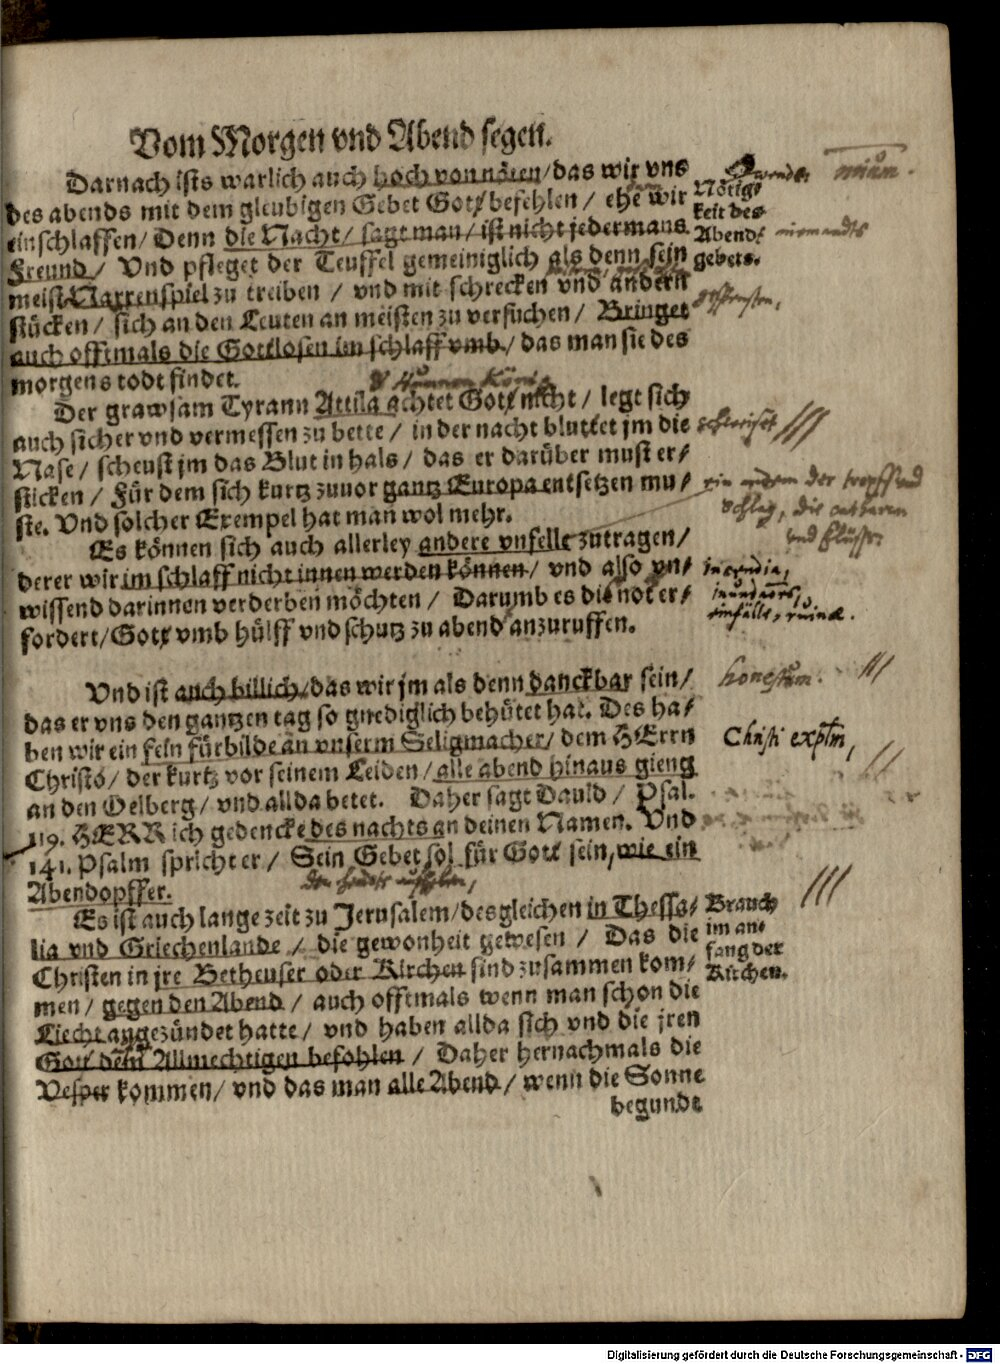 Vom Morgen vnd Abend segen.
Darnach ists warlich auch hoch vonnöten/das wir vns
des abends mit dem gleubigen Gebet Gott befehlen / ehe wir
einschlaffen/ Denn die Nacht/ sagt man/ ist nicht jedermans
Freund/ Vnd pfleget der Teuffel gemeiniglich als denn sein
meist Narrenspiel zu treiben / vnd mit schrecken vnd andern
stücken / sich an den Leuten am meisten zu versuchen / Bringet
auch offtmals die Gottlosen im schlaff vmb/ das man sie des
morgens todt findet.
Hunnen König
Der grawsam Tyrann Attila achtet Gott nicht / legt sich
auch sicher vnd vermessen zu bette / in der nacht bluttet jm die
Nase / scheust jm das Blut in hals / das er darüber must er/
sticken / Für dem sich kurtz zuuor gantz Europa entsetzen mu/
ste. Vnd solcher Exempel hat man wol mehr.
Es können sich auch allerley andere vnfelle zutragen/
derer wir im schlaff nicht innen werden können/ vnd also vn/
wissend darinnen verderben möchten / Darumb es die not er/
fordert/Gott vmb hülff vnd schutz zu abend anzuruffen.
Vnd ist auch billich/das wir jm als denn danckbar sein/
das er vns den gantzen tag so gnediglich behütet hat. Des ha/
ben wir ein fein fürbilde an vnserm Seligmacher/ dem HErrn
Christo/ der kurtz vor seinem Leiden/ alle abend hinaus gieng
an den Oelberg/ vnd allda betet. Daher sagt Dauid / Psal.
119. HERR ich gedencke des nachts an deinen Namen. Vnd
141. Psalm spricht er/ Sein Gebet sol für Gott sein, wie ein
Abendopffer.
Es ist auch lange zeit zu Jerusalem/desgleichen in Thessa/
lia vnd Griechenlande / die gewonheit gewesen / Das die
Christen in jre Betheuser oder Kirchen sind zusammen kom/
men/ gegen den Abend / auch offtmals wenn man schon die
Liecht angezündet hatte/ vnd haben allda sich vnd die jren
Gott dem Allmechtigen befohlen / Daher hernachmals die
Vesper kommen/ vnd das man alle Abend/ wenn die Sonne
begunde
Nötig/
keit des
Abend/
gebets.
niemandts
der tropff und
schlag, die
und flüsse
incendia,
einfälle, ruinae.
honestum.
Christi explm,
Brauch
im an/
fang der
Kirchen.
Digitalisierung gefördert durch die Deutsche Forschungsgemeinschaft - DFG